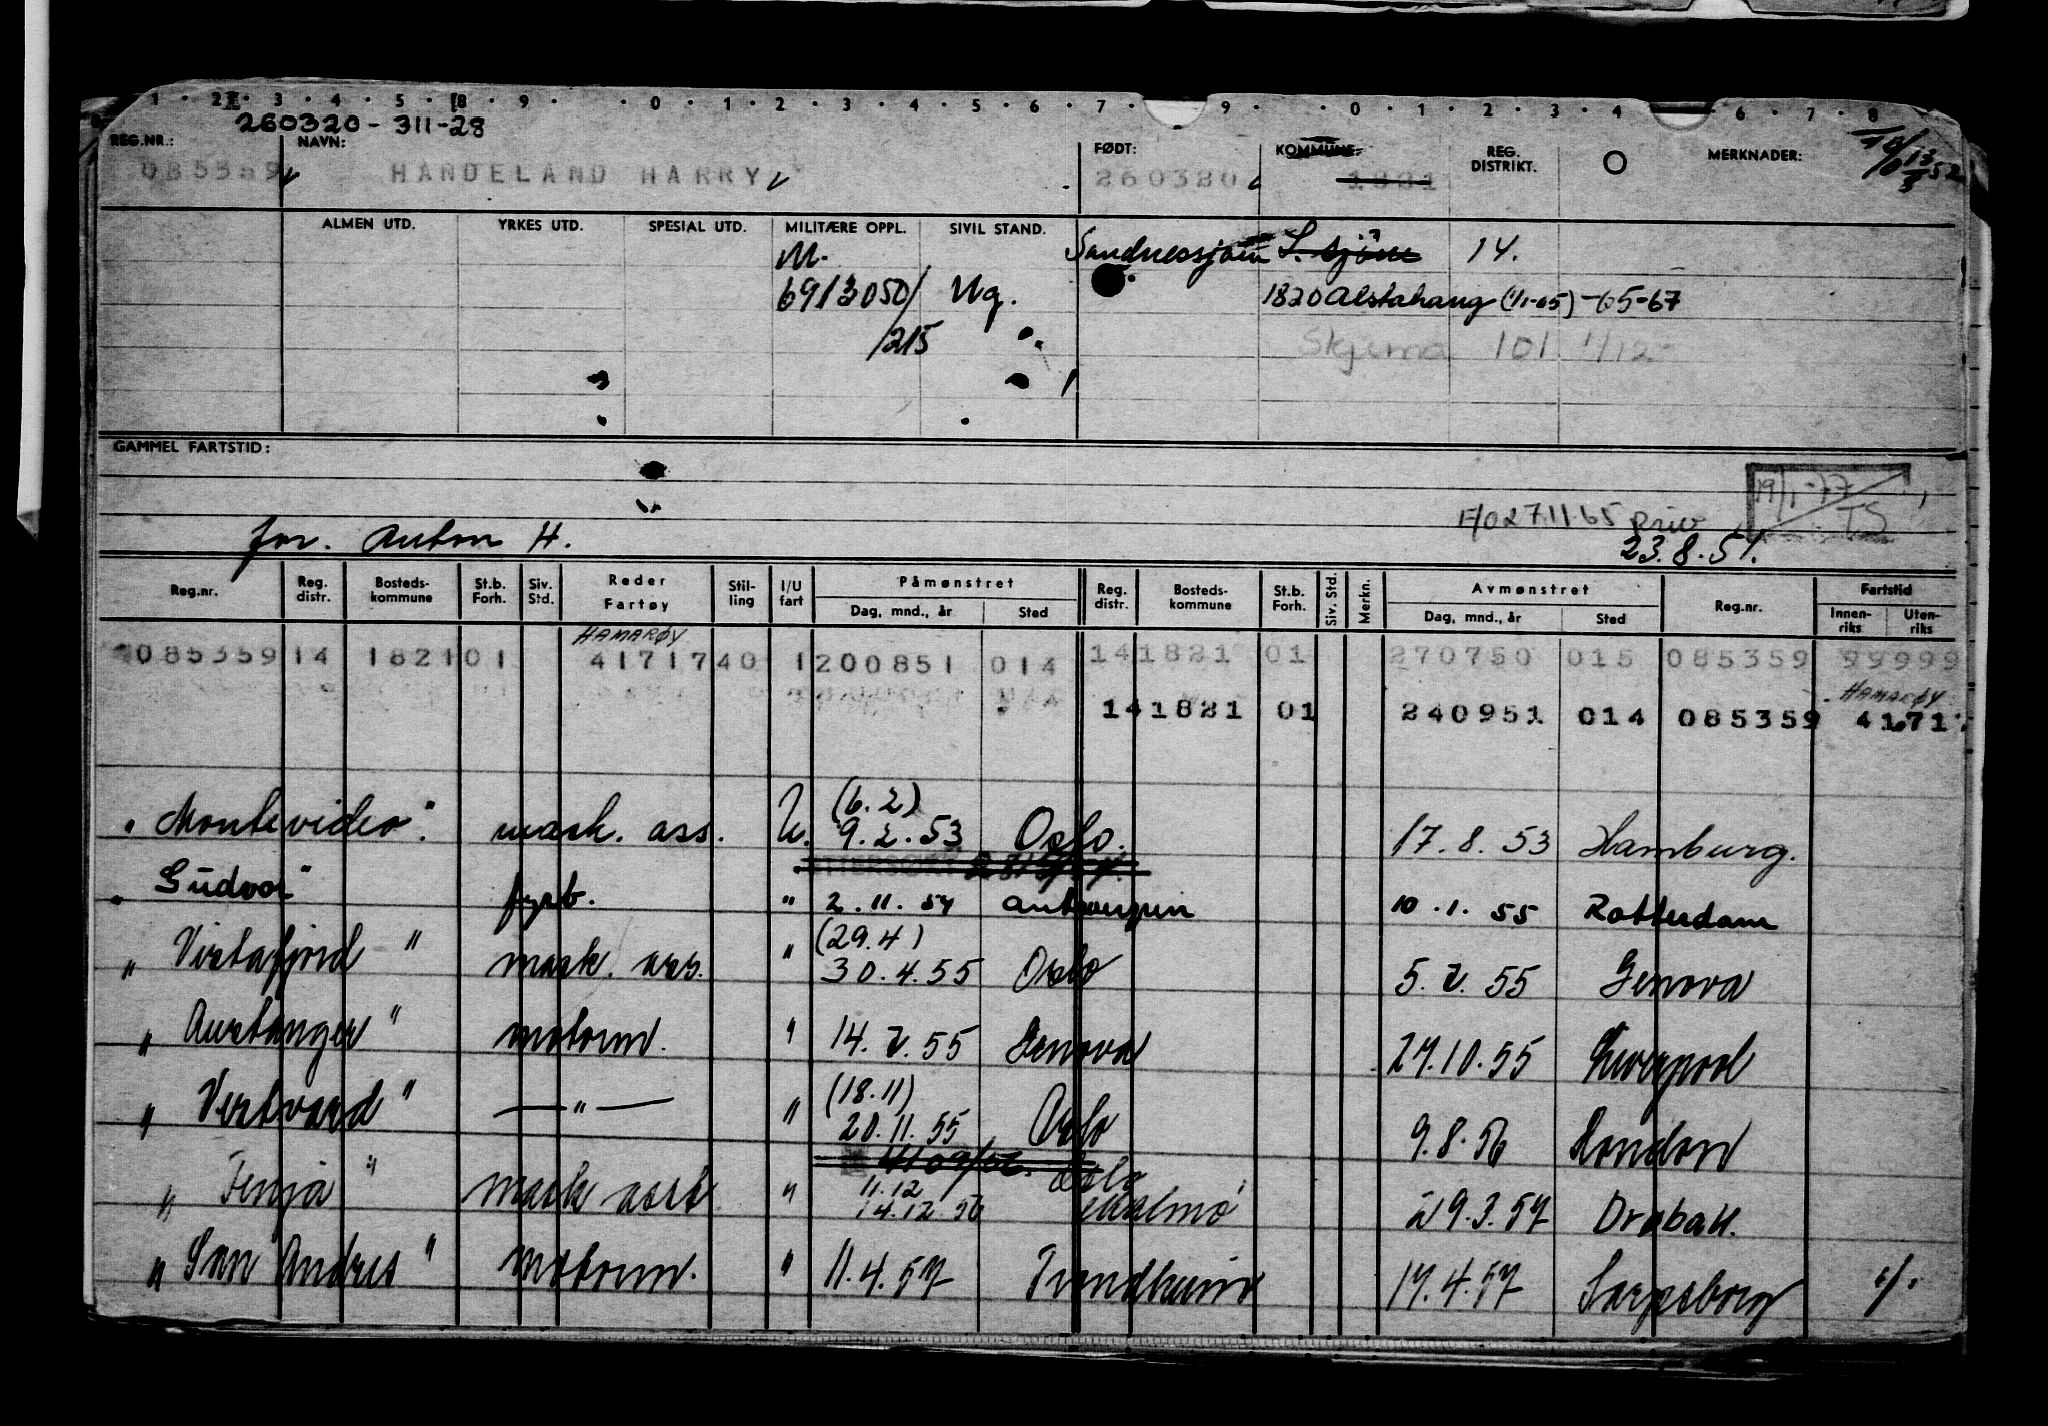 1 · 2 · 3 · 4 · 5 · 8 · 9 · · 0 · 1 · 2 · 3 · 4 · 5 · 6 · 7 · 9 · · 0 · 1 · 2 · 3 · 4 · 6 · 7 · 8
260320 - 311-28
REG.NR.: NAVN: FØDT: KOMMUNE: REG. DISTRIKT. MERKNADER:
085359 HANDELAND HARRY 260320 1821
ALMEN UTD. YRKES UTD. SPESIAL UTD. MILITÆRE OPPL. SIVIL STAND.
M. Sandnessjøen 14.
6913050/ Ug. 1820 Alstahaug (1/1-65) -65-67
215 Skjerna 101 1/12-
GAMMEL FARTSTID:
19/1-77
TS
F/O 271165
for. Anton H. 23.8.51.
Reg.nr. Reg. distr. Bosteds-kommune St.b. Forh. Siv. Std. Reder Fartøy Stil-ling I/U fart Påmønstret Reg. distr. Bosteds-kommune St.b. Forh. Siv. Std. Merkn. Avmønstret Reg.nr. Fartstid
Dag, mnd., år Sted Dag, mnd., år Sted Innen-riks Uten-riks
HAMARØY
085359 14 1821 01 41717 40 1 200851 014 14 1821 01 270750 015 085359 99999
HAMARØY
14 1821 01 240951 014 085359 41717
(6.2)
" Montevideo". mask. ass. U. 9.2.53 Oslo. 17.8.53 Hamburg.
" Gudvor" fyrb. " 2.11.54 Antwerpen 10.1.55 Rotterdam
(29.4)
" Vistafjord " mask. ass. " 30.4.55 Oslo 5.7.55 Genova
" Austanger " motorm. " 14.7.55 Genova 27.10.55 Liverpool
(18.11)
" Vestvard " — " — " 20.11.55 Oslo 9.8.56 London
11.12 Oslo
" Fenja " mask asst. " 14.12.56 Malmø 29.3.57 Drøbak.
" San Andres " motorm. " 11.4.57 Trondheim 17.4.57 Sarpsborg ./.